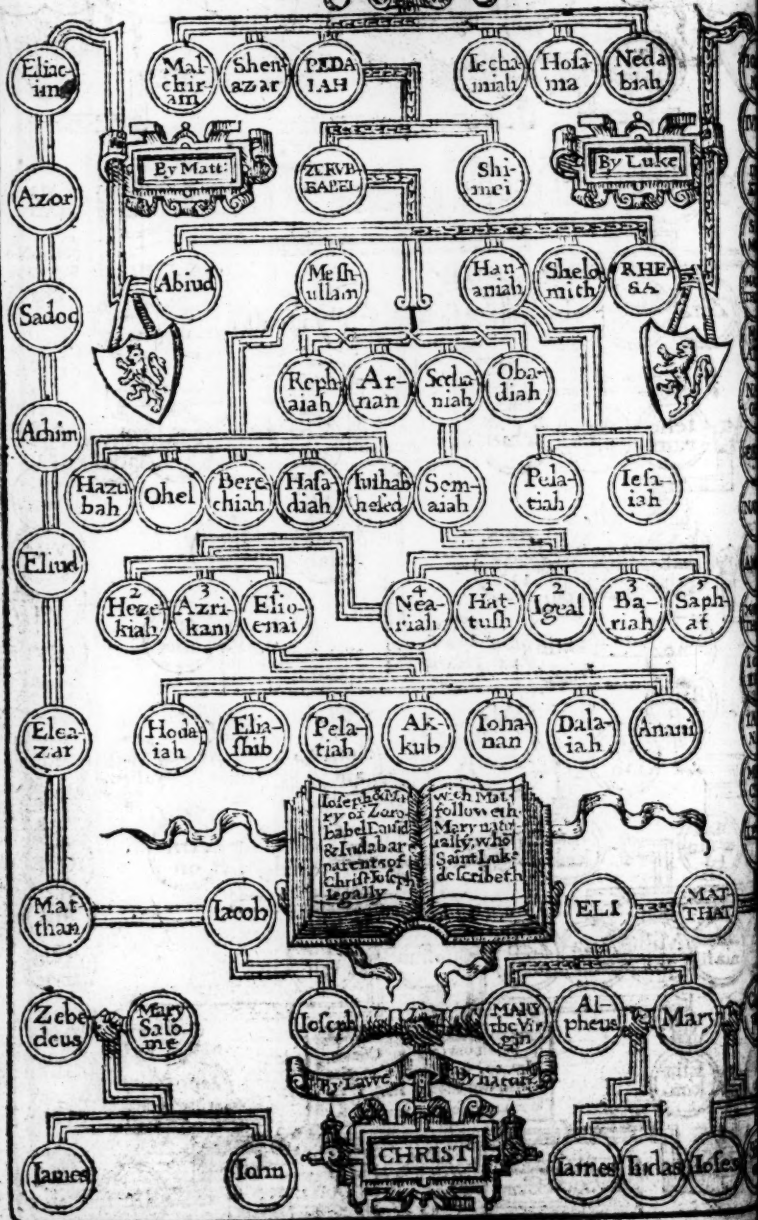 Eliac-
im
Mal-
chir-
am
Shen-
azar
PEDA
IAH
Iecha
miah
Hosa-
ma
Neda
biah
By Matt:
ZERVB
BABEL
Shi-
mei
By Luke
Azor
Abiud
Meſh
ullam
Han-
aniah
Shelo
mith
RHE
SA
Sadoc
Reph
aiah
Ar-
nan
Secha
niah
Oba-
diah
Achim
Hazu
bah
Ohel
Bere
chiah
Haſa
diah
Iuſhab
heſed
Sem-
aiah
Pela-
tiah
Ieſa-
iah
Eliud
2
Heze
kiah
3
Azri-
kam
1
Elio-
enai
4
Nea-
riah
1
Hat-
tuſh
2
Igeal
3
Ba-
riah
5
Saph-
at
Elea-
zar
Hoda-
iah
Elia-
ſhib
Pela-
tiah
Ak-
kub
Ioha-
nan
Dala-
iah
Anani
Ioſeph & Ma
ry of Zoro-
babel Dauid
& Iuda bar
parents of
Chriſt Ioſeph
legally
wch Mat:
followeth.
Mary natu-
rally, who
Saint Luke
deſcribeth
Mat-
than
Iacob
ELI
MAT
THAT
Zebe
deus
Mary
Salo-
me
Ioſeph
MARY
the Vir-
gin
Al-
pheus
Mary
By Lawe
By nature
CHRIST
Iames
Iohn
Iames
Iudas
Ioſes